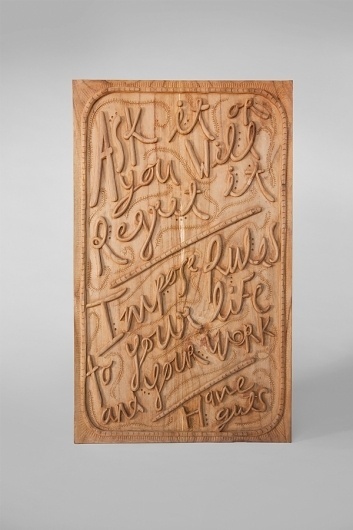 ASK it or
you Will
Regret it
Impose Rules
to your life
and your WORK
Have
guts